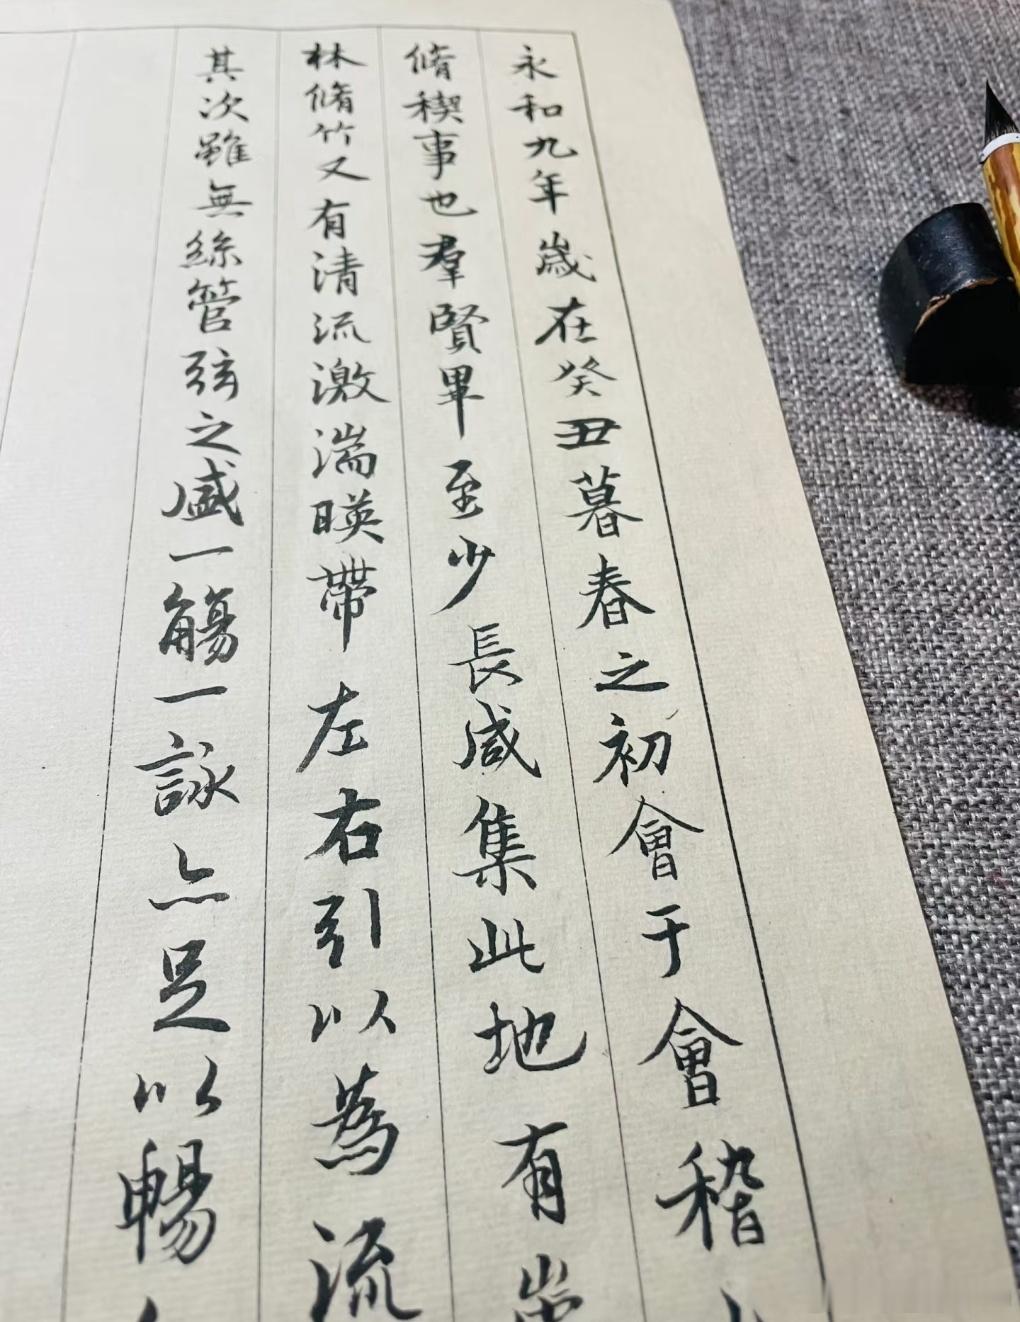 永和九年歲在癸丑暮春之初會于會稽
脩稧事也羣賢畢至少長咸集此地有崇
林脩竹又有清流激湍暎帶左右引以為流
其次雖無絲管弦之盛一觴一詠亦足以暢